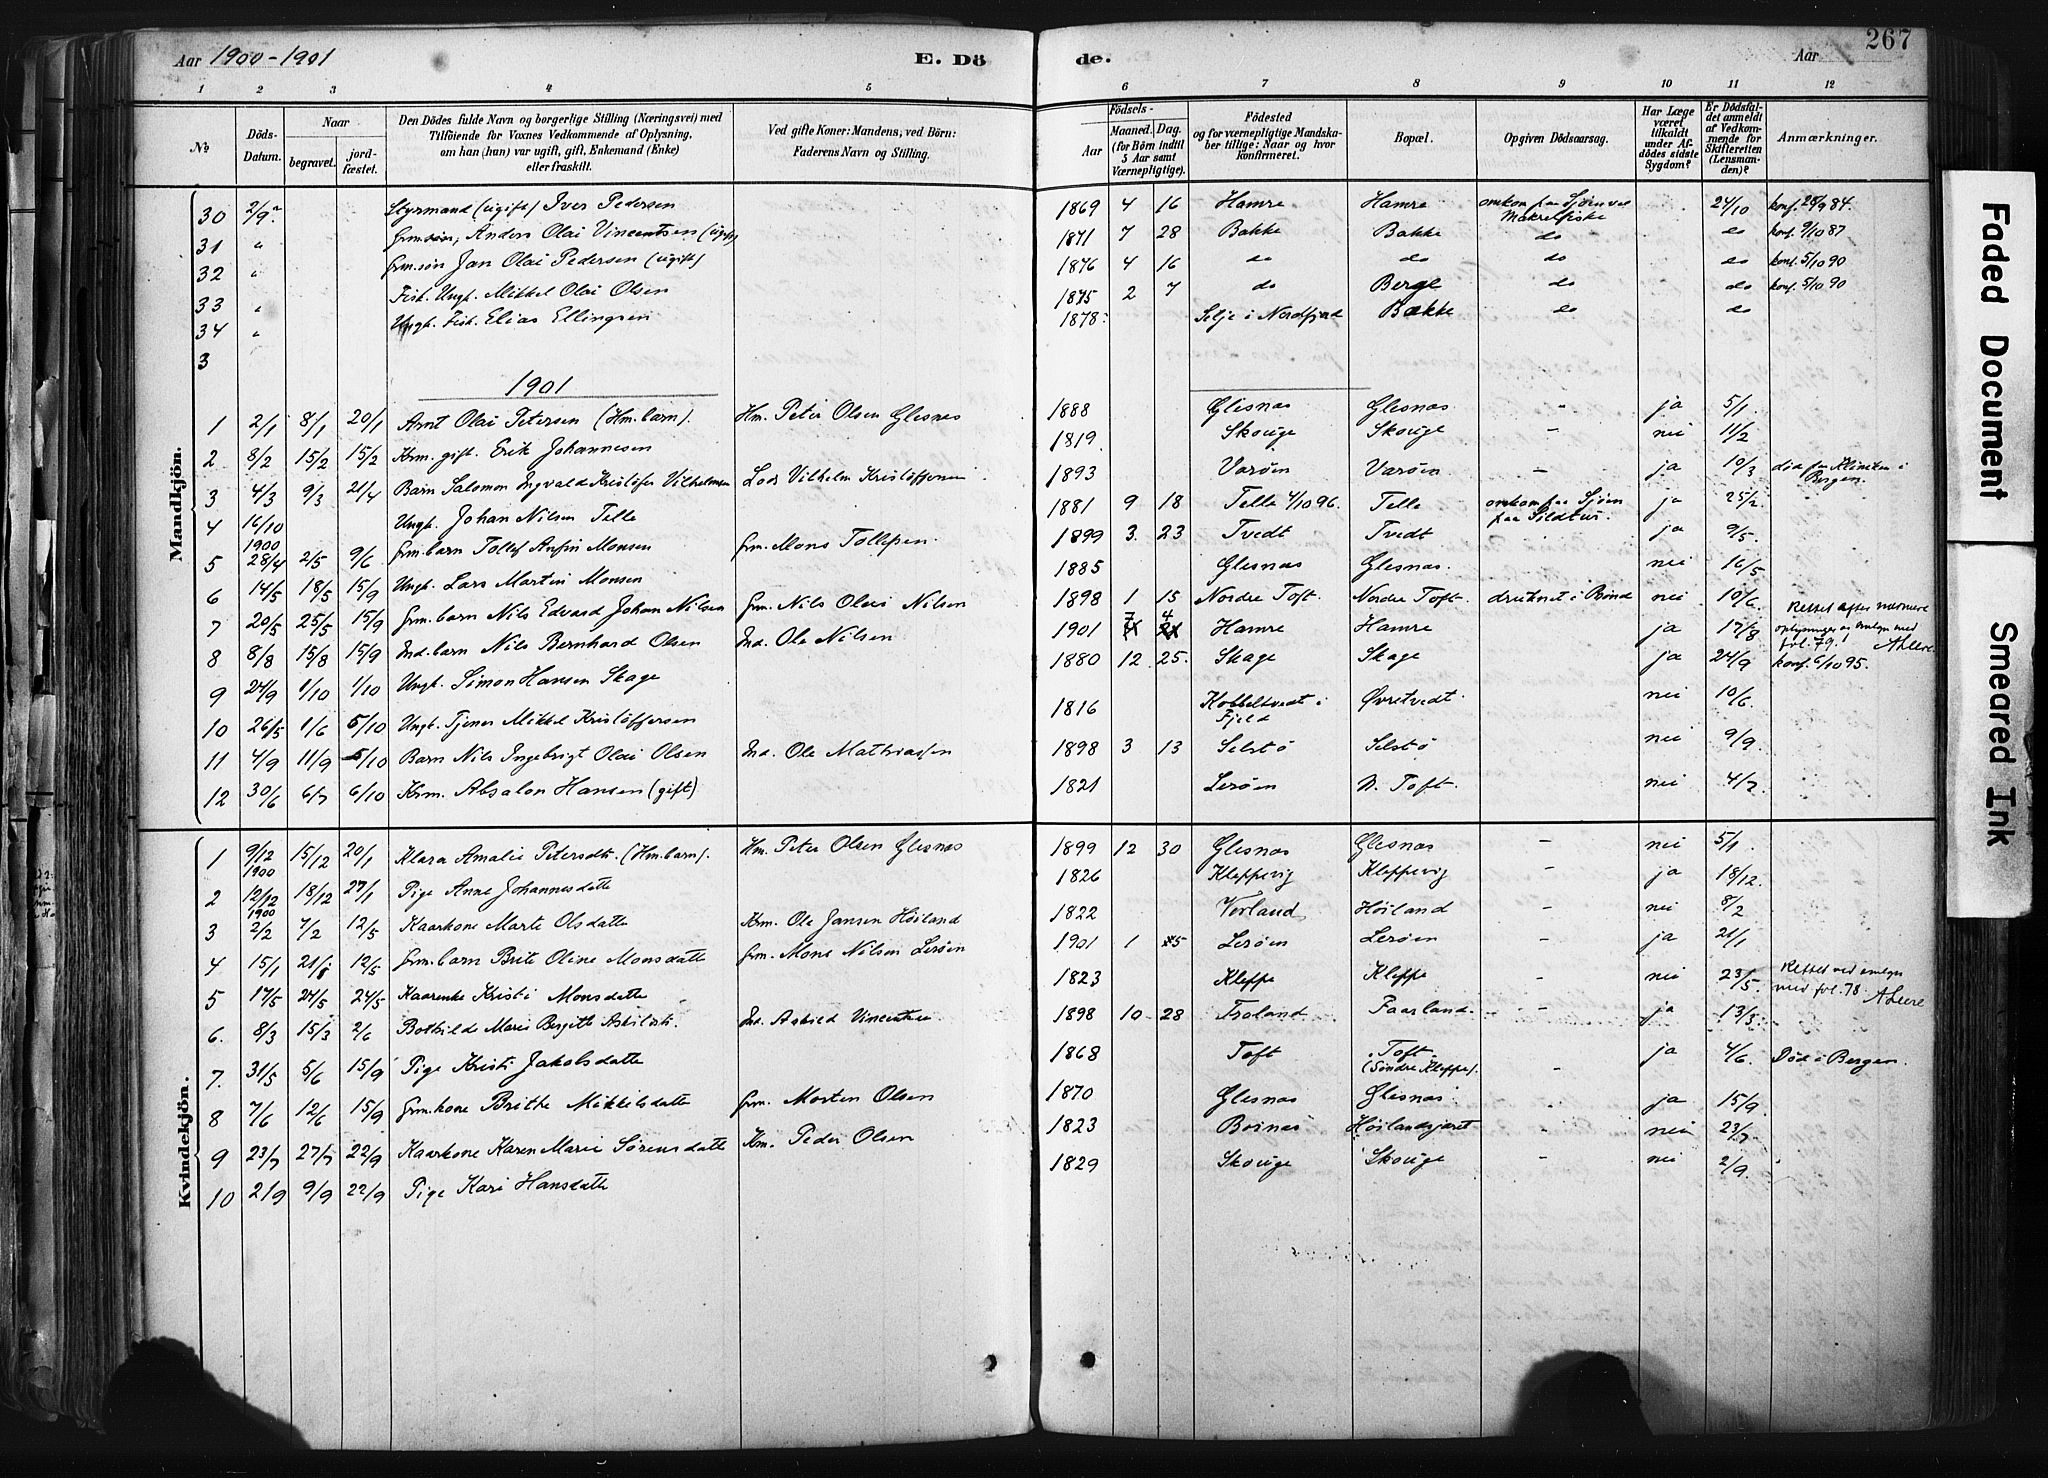 Aar 1900-1901
E. Dö
de.
Aar
267
1 2 3 4 5 6 7 8 9 10 11 12
No
Döds-Datum.
Naar
begravet.
jord-fæstet.
Den Dödes fulde Navn og borgerlige Stilling (Næringsvei) med
Tilföiende for Voxnes Vedkommende af Oplysning,
om han (hun) var ugift, gift, Enkemand (Enke)
eller fraskilt.
Ved gifte Koner: Mandens; ved Börn:
Faderens Navn og Stilling.
Födsels-
Aar
Maaned. Dag.
(for Börn indtil
5 Aar samt
Værnepligtige).
Födested
og for værnepligtige Mandska-
ber tillige: Naar og hvor
konfirmeret.
Bopæl.
Opgiven Dödsaarsag.
Har Læge
været
tilkaldt
under Af-
dödes sidste
Sygdom?
Er Dödsfal-
det anmeldt
af Vedkom-
mende for
Skifteretten
(Lensman-
den)?
Anmærkninger.
Mandkjön.
30 2/9 Styrmand (ugift) Iver Pedersen 1869 4 16 Hamre Hamre omkom paa Sjöen ved Makrelfiske 24/10 konf. 28/9 84.
31 " Grm.søn, Anders Olai Vincentsen (ugift) 1871 7 28 Bakke Bakke do do konf. 9/10 87
32 " Grm.søn Jan Olai Pedersen (ugift) 1876 4 16 do do do do konf. 5/10 90
33 " Fisk. Ungk. Mikkel Olai Olsen 1875 2 7 do Berge do do konf. 5/10 90
34 " Ungk. Fisk. Elias Ellingsen 1878 Selje i Nordfjord Bakke do do
3
1901
1 2/1 8/1 20/1 Arnt Olai Petersen (Hm. barn). Hm. Peter Olsen Glesnæs 1888 Glesnæs Glesnæs - ja 5/1
2 8/2 15/2 15/2 Krm. gift. Erik Johannesen 1819 Skoige Skoige - nei 11/2
3 4/3 9/3 21/4 Barn Salomon Ingvald Kristofer Vilhelmsen Lods Vilhelm Kristoffersen 1893 Varöen Varöen - ja 10/3 död paa Kliniken i Bergen.
4 16/10 1900 Ungk. Johan Nilsen Telle 1881 9 18 Telle 4/10 96. Telle omkom paa Sjöen paa Sildtur. ja 25/2
5 28/4 2/5 9/6 Grm. barn Tollef Anfin Monsen Grm. Mons Tollefsen 1899 3. 23 Tvedt Tvedt ja 9/5.
6 14/5 18/5 15/9 Ungk. Lars Martin Monsen 1885 Glesnæs Glesnæs. nei 16/5
7 20/5 25/5 15/9 Grm. barn Nils Edvard Johan Nilsen Grm. Nils Olai Nilsen 1898 1 15 Nordre Toft. Nordre Toft. druknet i Brönd nei 10/6.
8 8/8 15/8 15/9 Ind. barn Nils Bernhard Olsen Ind. Ole Nilsen 1901 7 4 Hamre Hamre ja 17/8 Rettet efter nærmere oplysninger
9 24/9 1/10 1/10 Ungk. Simon Hansen Skage 1880 12 25. Skage Skage ja 24/9 konf. 6/10 95.
10 26/5 1/6 5/10 Ungk. Tjener Mikkel Kristoffersen 1816 Kobbeltvedt i Fjeld Øvretvedt nei 10/6.
11 4/9 11/9 5/10 Barn Nils Ingebrigt Olai Olsen Ind. Ole Mathiassen 1898 3 13 Selstö Selstö nei 9/9
12 30/6 6/7 6/10 Krm. Absalon Hansen (gift) 1821 Lerøen N. Toft. nei 4/7
Kvindekjön.
1 9/12 1900 15/12 20/1 Klara Amalie Petersdtr. (Hm. barn). Hm. Peter Olsen Glesnæs 1899 12 30 Glesnæs Glesnæs - nei 5/1.
2 12/12 1900 18/12 27/1 Pige Anne Johannesdatter 1826 Kleppevig Kleppevig - ja 18/12.
3 2/2 7/2 12/5 Kaarkone Marte Olsdatter Krm. Ole Jansen Høiland 1822 Vorland Høiland - nei 8/2
4 15/1 21/1 12/5 Grm. barn Brite Oline Monsdatter Grm. Mons Nilsen Lerøen 1901 1 5 Lerøen Lerøen - ja 21/1
5 17/5 24/5 24/5 Kaarenke Kristi Monsdatter 1823 Kleppe Kleppe - nei 23/5. Rettet ved med fol. 78.
6. 8/3 15/3 2/6 Bothild Marie Bergitte Askildsdtr. Ind. Askild Vincentsen 1898 10 28 Troland Faarland - ja 13/3
7. 31/5 5/6 15/9 Pige Kristi Jakobsdatter 1868 Toft Toft (Søndre Kleppe). - ja 4/6 Död i Bergen.
8 7/6 12/6 15/9 Grm.kone Brithe Mikkelsdatter Grm. Morten Olsen 1870 Glesnæs Glesnæs - ja 15/9.
9 23/7 27/7 22/9 Kaarkone Karen Marie Sørensdatter Km. Peder Olsen 1823 Boinæs Høilandsjøret - nei 23/7.
10 2/9 9/9 22/9 Pige Kari Hansdatter 1829 Skoige Skoige - nei 2/9.
Faded Document
Smeared Ink